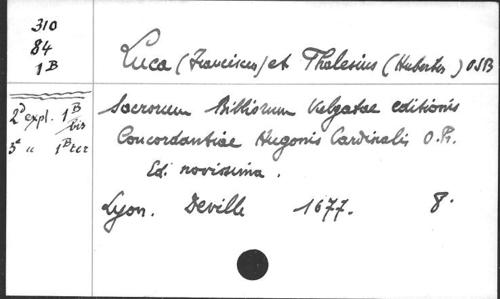 310
84
1B
Luca (Franciscus) et Thalesius (Hubertus) OSB
2d expl. 1B bis
3e " 1B ter
Sacrorum Bibliorum Vulgatae editionis
Concordantiae Hugonis Cardinalis O.Pr.
Ed. novissima.
Lyon. Deville 1677. 8.